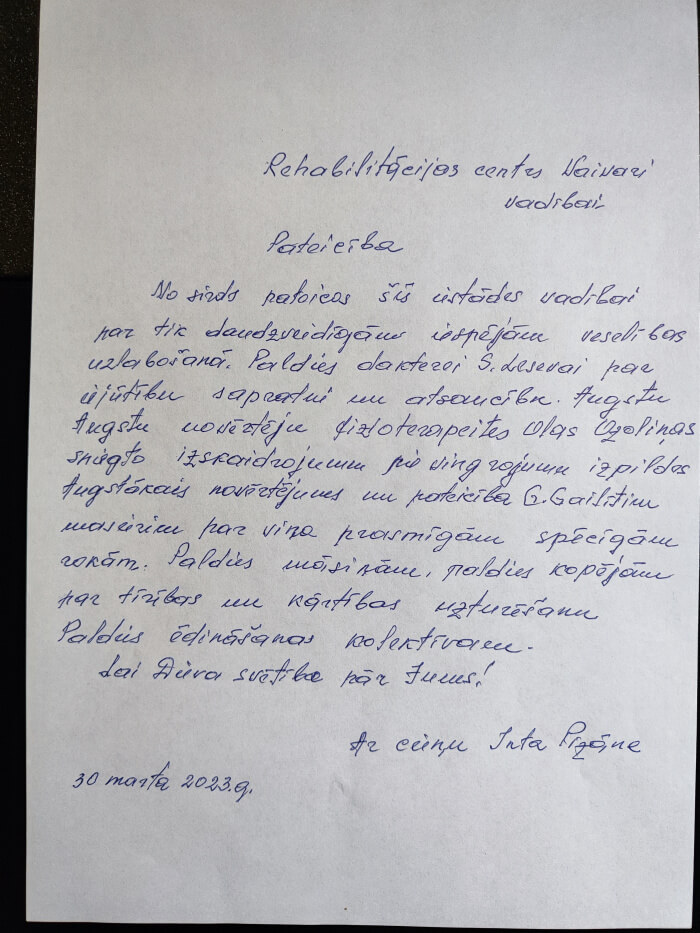 Rehabilitācijas centrs Vaivari
vadībai
Pateicība
No sirds pateicos šīs iestādes vadībai
par tik daudzveidīgām iespējām veselības
uzlabošanā. Paldies dakterei S. Lesevai par
iejūtību sapratni un atsaucību. Augstu
Augstu novērtēju fizioterapeites Olas Ozoliņas
sniegto izskaidrojumu pie vingrojumu izpildes
Augstākais novērtējums un pateicība G. Gailītim
masierim par viņa prasmīgām spēcīgām
rokām. Paldies māsiņām, paldies kopējām
par tīrības un kārtības uzturēšanu
Paldies ēdināšanas kolektīvam.
Lai Dieva svētība pār Jums!
Ar cieņu Inta Pizāne
30 martā 2023.g.